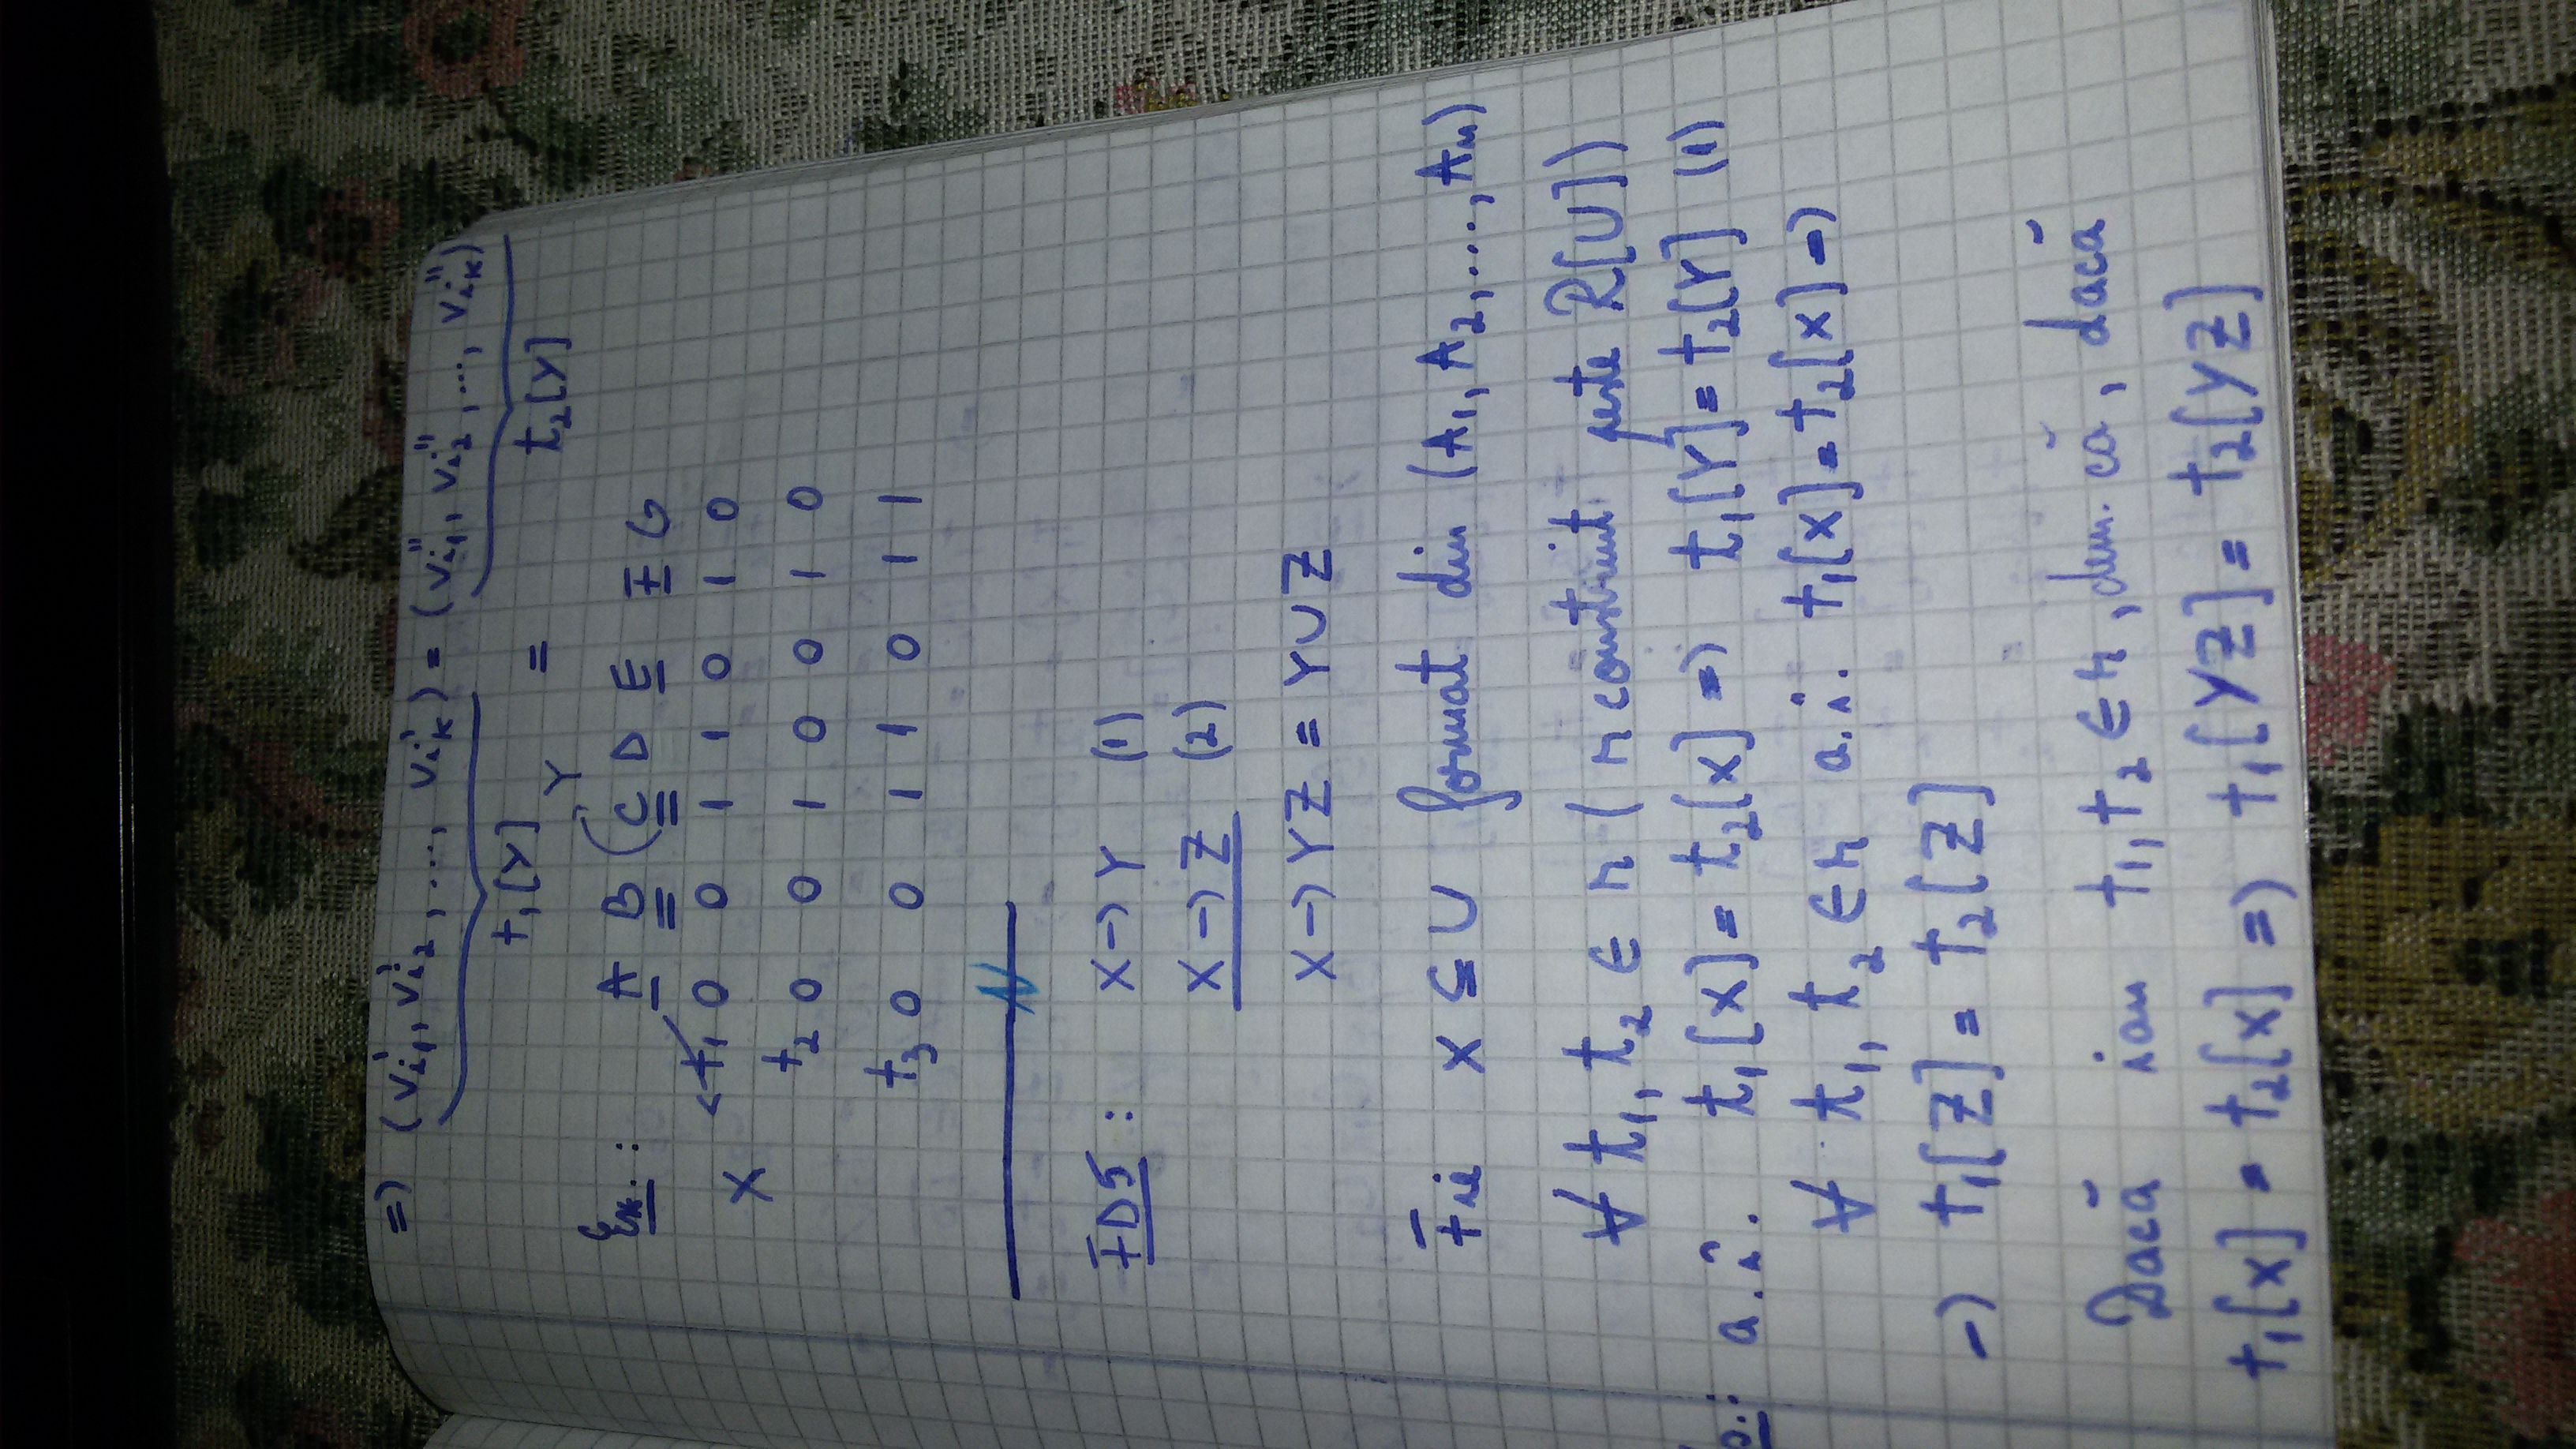 => (v'i1, v'i2, ..., v'ik) = (v''i1, v''i2, ..., v''ik)
t1[Y] = t2[Y]
Y
Ex.: A B C D E F G
t1 0 0 1 1 0 1 0
X
t2 0 0 1 0 0 1 0
t3 0 0 1 1 0 1 1
N
FD5: X → Y (1)
X → Z (2)
X → YZ = Y ∪ Z
Fie X ⊆ U format din (A1, A2, ..., An)
∀ t1, t2 ∈ r (r construit peste R[U])
a.î. t1[X] = t2[X] => t1[Y] = t2[Y] (1)
∀ t1, t2 ∈ r a.î. t1[X] = t2[X] =>
=> t1[Z] = t2[Z]
Dacă iau t1, t2 ∈ r, dem. că, dacă
t1[X] = t2[X] => t1[YZ] = t2[YZ]